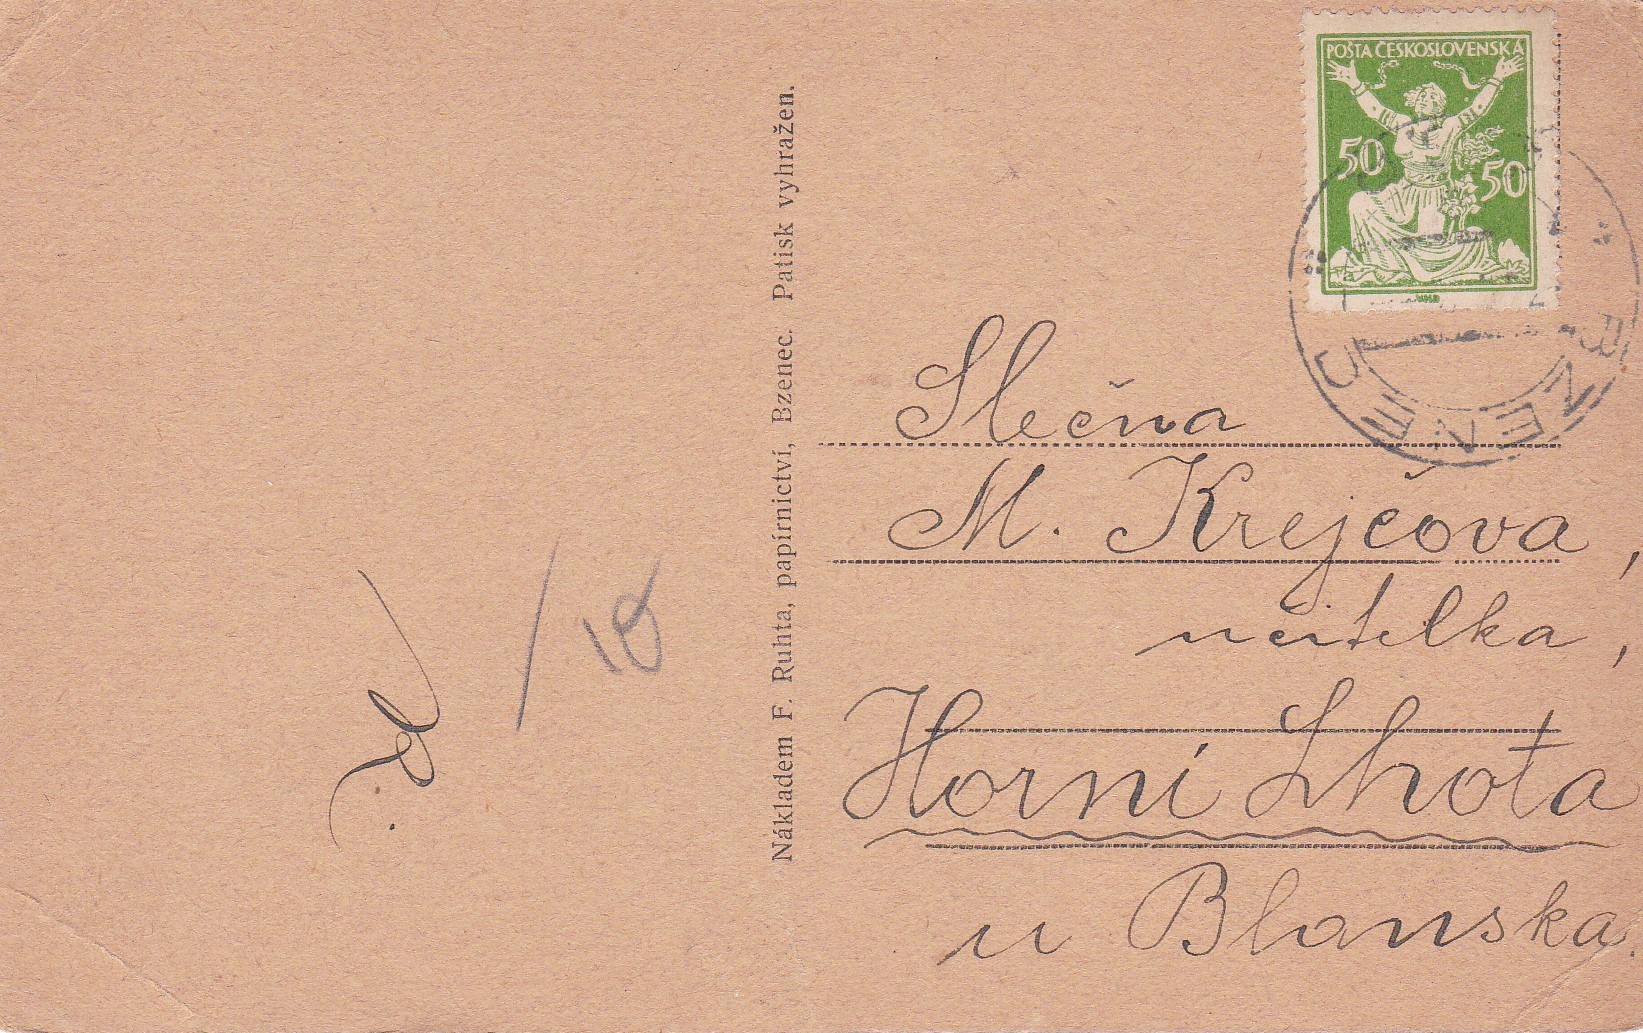 POŠTA ČESKOSLOVENSKÁ
50
50
BZENEC
Nákladem F. Ruhta, papírnictví, Bzenec. Patisk vyhražen.
Slečna
M. Krejčova,
učitelka,
Horní Lhota
u Blanska.